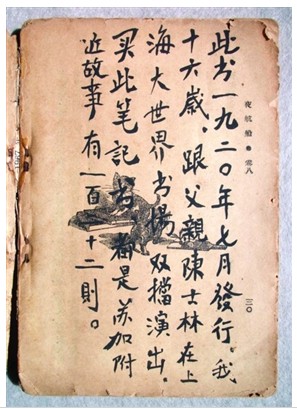 夜航船 卷八
三〇
此书一九二〇年七月發行。我
十六歲、跟父親陳士林在上
海大世界书場双擋演出。
买此笔記书、都是苏加附
近故事有一百十二則。